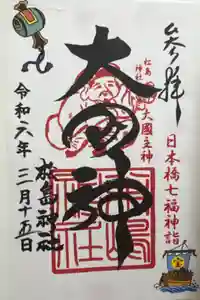 奉拝
日本橋七福神詣
松島神社
大國主神
大國神
松島神社
令和六年三月十五日